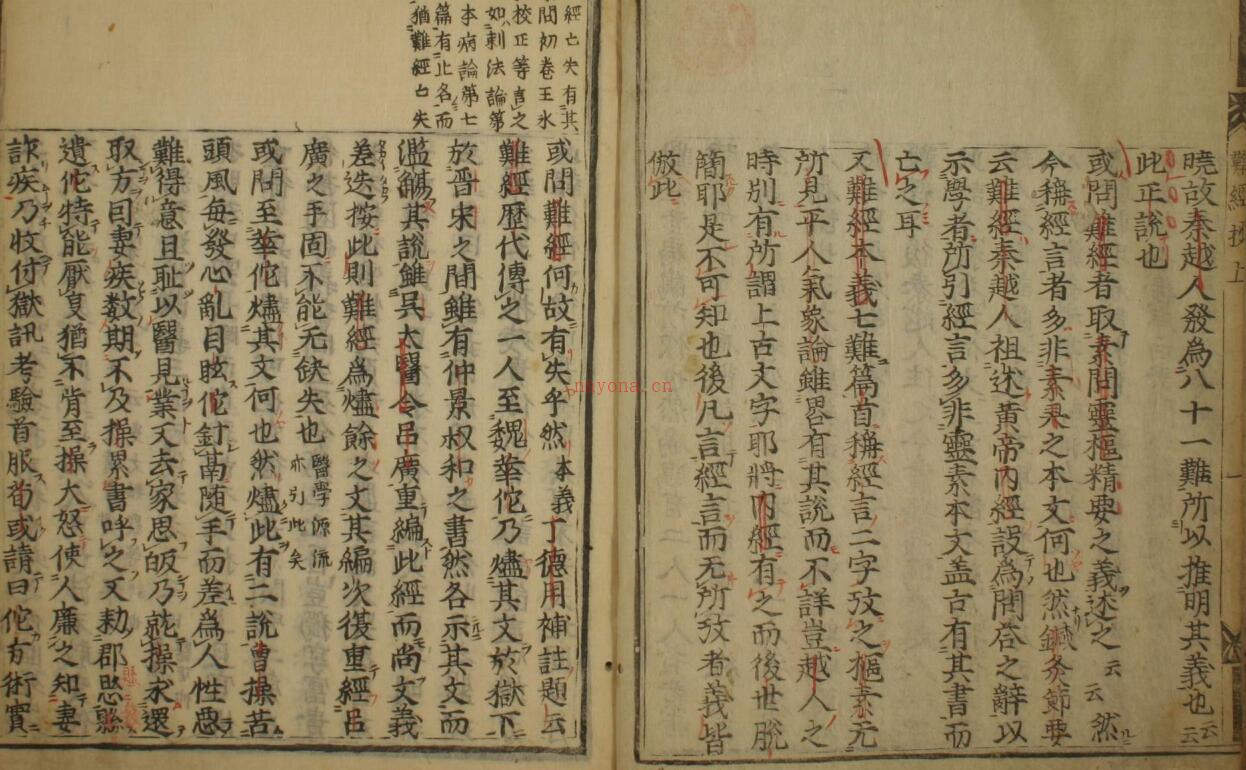 難經抄上
一
曉故秦越人發爲八十一難所以推明其義也云云
此正說也
或問難經者取素問靈樞精要之義述之云云然
今稱經言者多非素灵之本文何也然鍼灸節要
云難經秦越人祖述黃帝內經設爲問荅之辭以
示學者所引經言多非靈素本文盖古有其書而
亡之耳
又難經本義七難篇首稱經言二字攷之樞素无
所見平人氣象論雖畧有其說而不詳豈越人之
時別有所謂上古文字耶將內經有之而後世脫
簡耶是不可知也後凡言經言而无所攷者義皆
倣此
經亡失有其
問初卷王氷
校正等言之
如刺法論第
本病論第七
篇有止名而
猶難經亡失
或問難經何故有失乎然本義丁德用補註題云
難經歷代傳之一人至魏華佗乃燼其文於獄下
於晉宋之間雖有仲景叔和之書然各示其文而
濫觴其說雖吳太醫令呂廣重編此經而尚文義
差迭按此則難經爲燼餘之文其編次復重經呂
廣之手固不能无缺失也醫學源流亦引此矣
或問至華佗燼其文何也然燼此有二說曹操苦
頭風每發心亂目眩佗針鬲随手而差爲人性惡
難得意且耻以醫見業又去家思皈乃就操求還
取方曰妻疾数期不及操累書呼之又勑郡縣
遣佗特能厭㕝猶不肯至操大怒使人廉之知妻
詐疾乃收付獄訊考驗首服荀或請曰佗方術實
nayona.cn